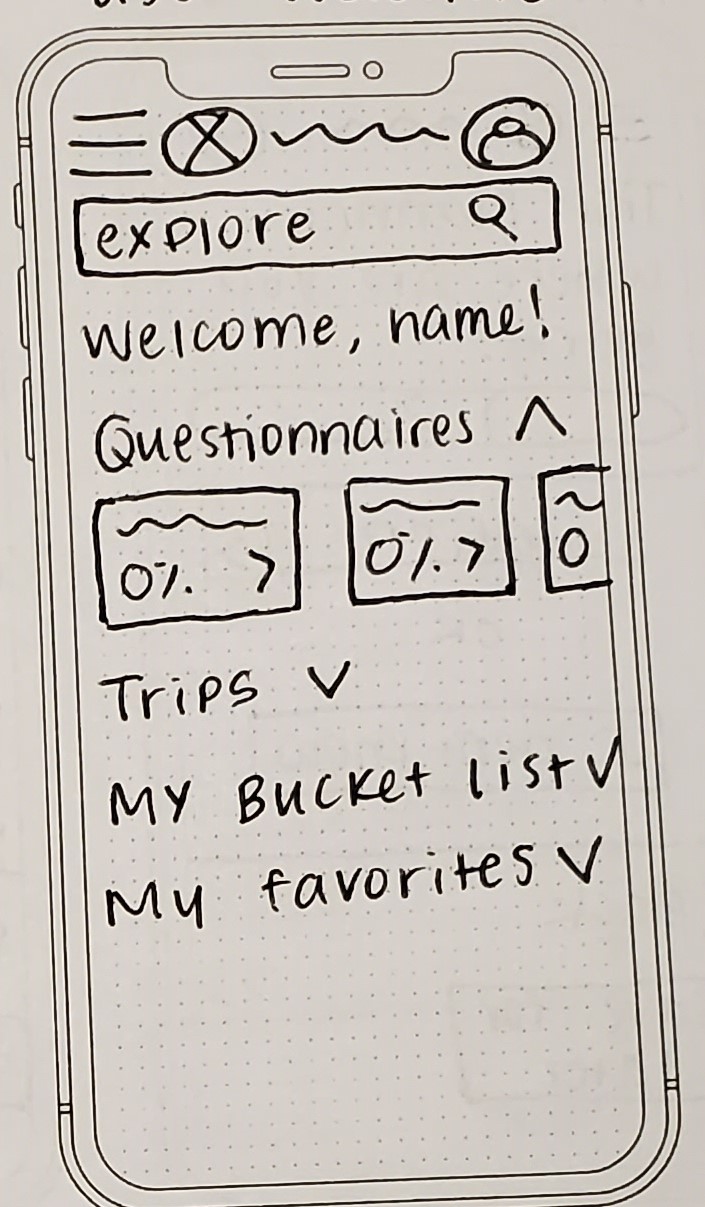 explore
Welcome, name!
Questionnaires
0% > 0% > 0
Trips
My Bucket list
My favorites